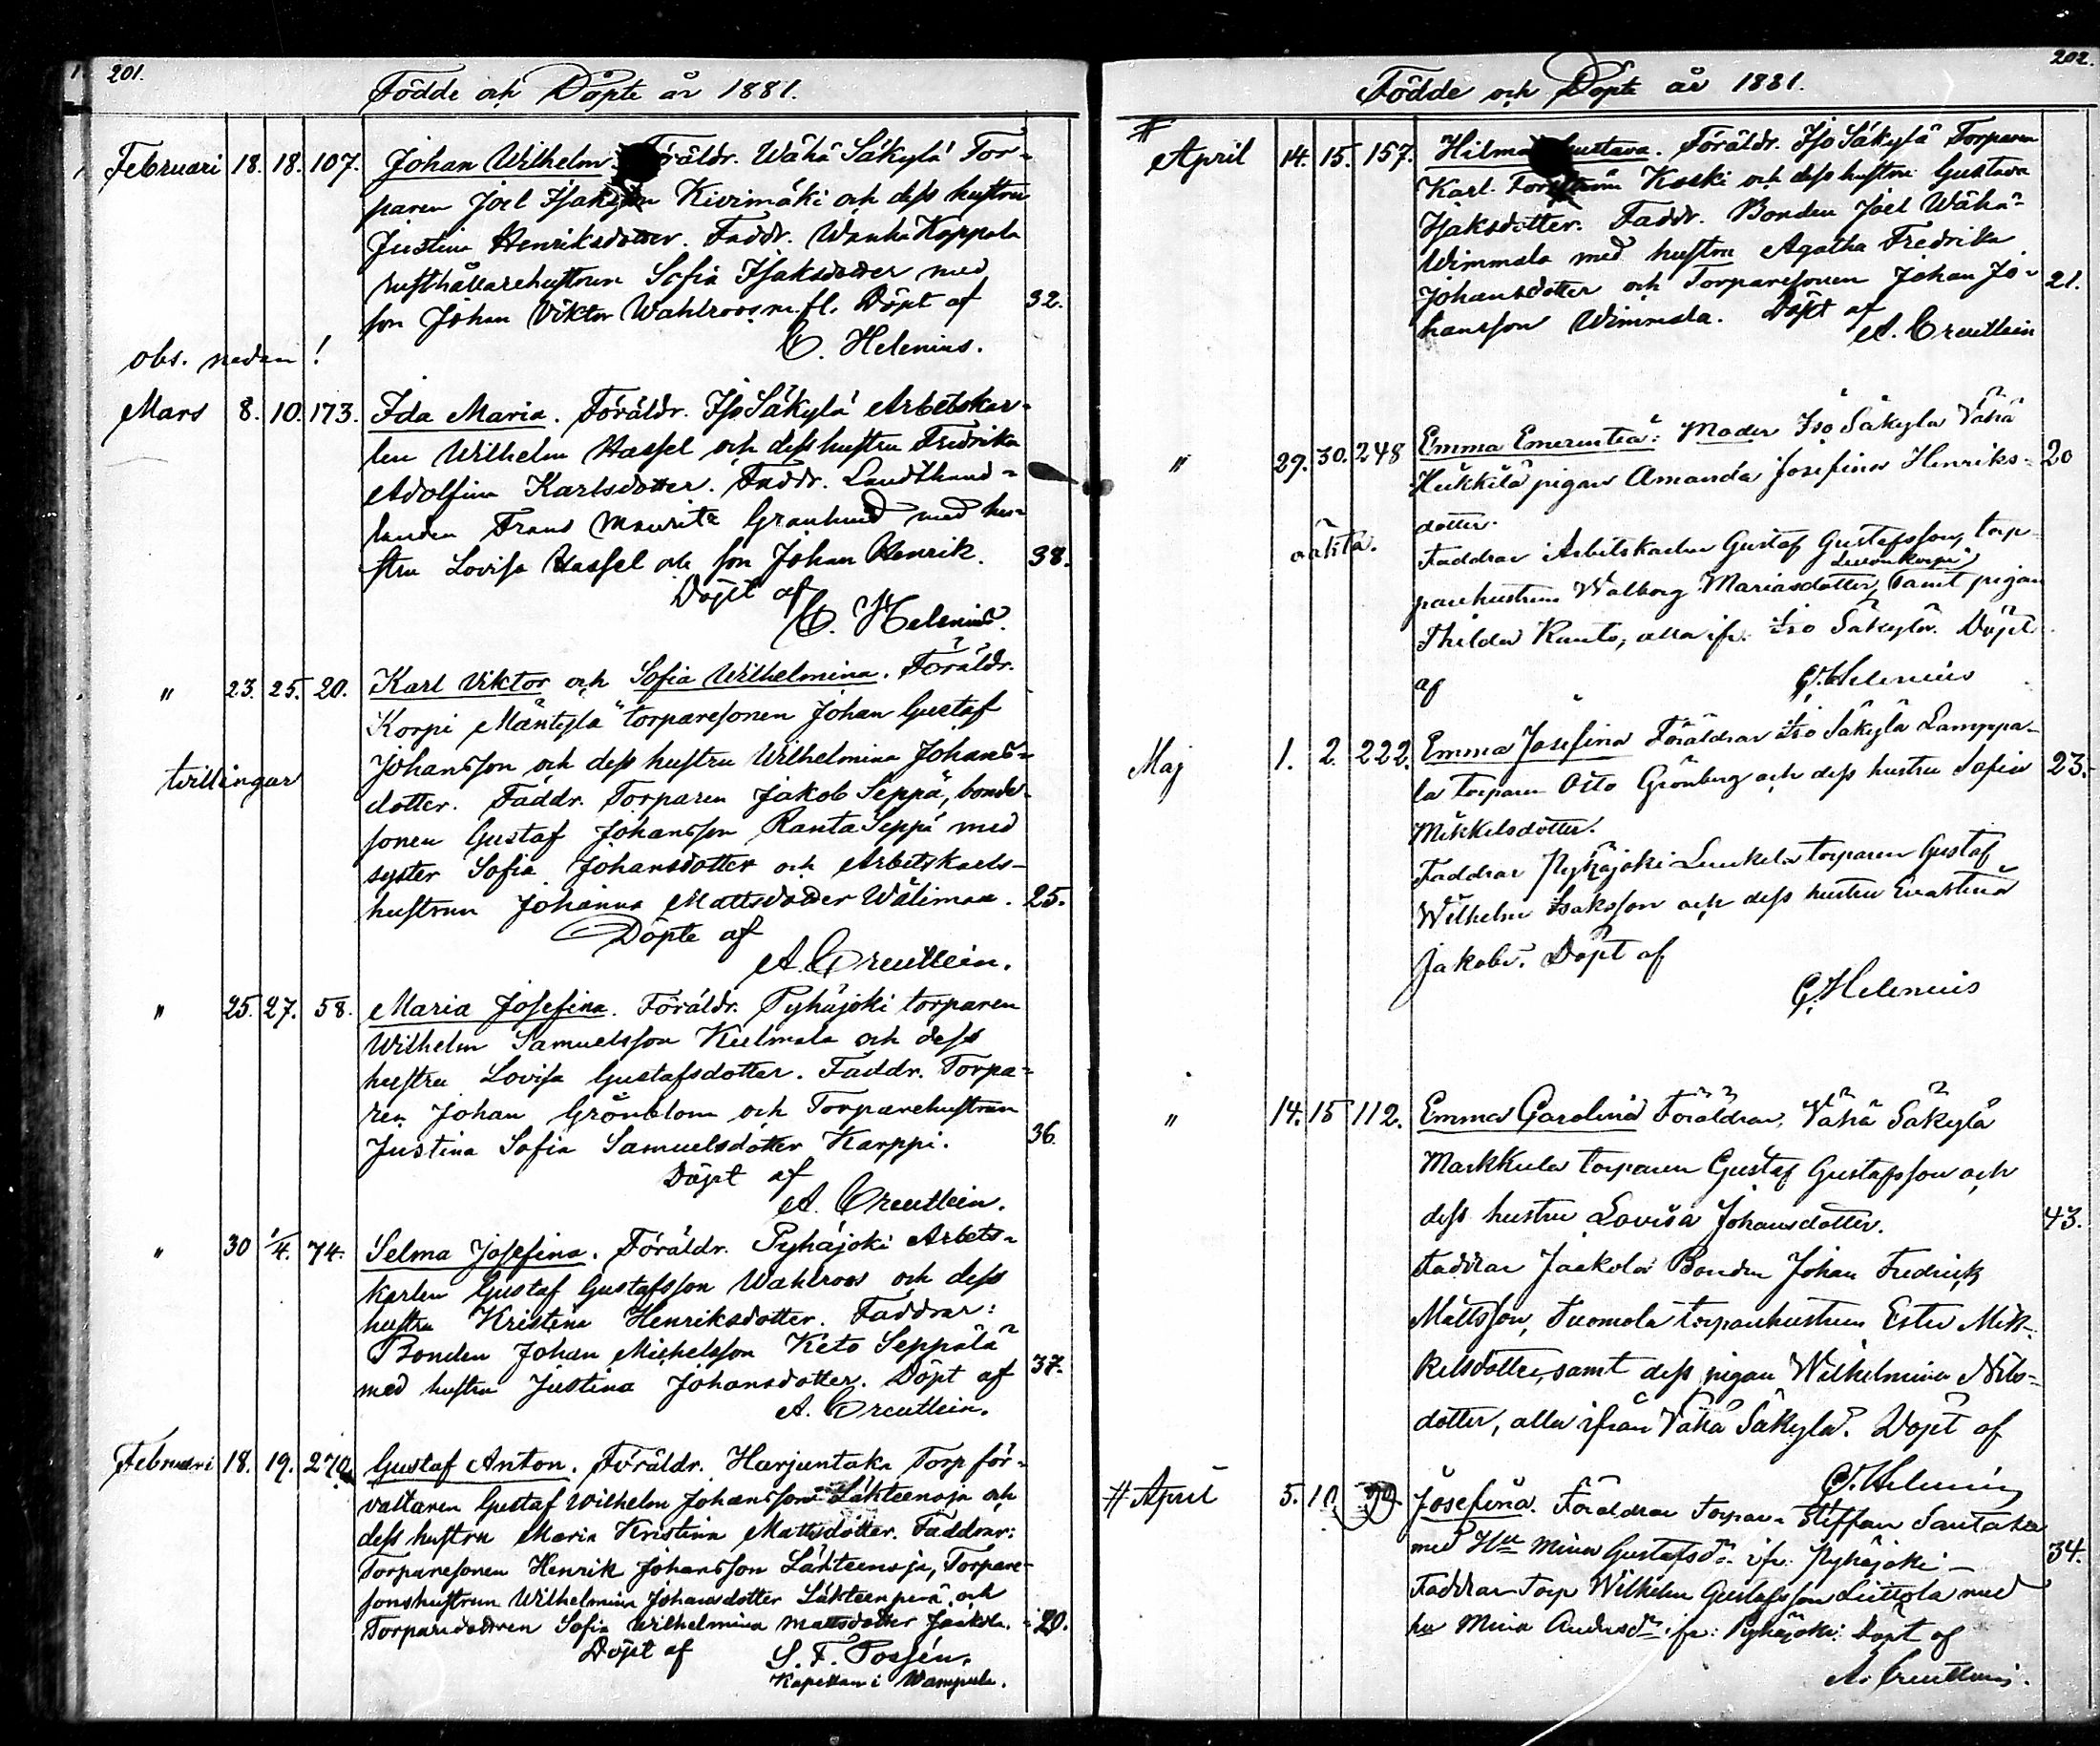 201.
Födde och Döpte år 1881.
Februari 18. 18. 107. Johan Wilhelm Föräldr. Wähä Säkylä Tor-
paren Joel Isaksson Kivimäki och dess hustru
Justina Henriksdotter. Faddr. Wanha Kappala
rusthållarehustrun Sofia Isaksdotter med
son Johan Viktor Wahlroos m. fl. Döpt af 32.
C. Helenius.
obs. nedan!
Mars 8. 10. 173. Ida Maria. Föräldr. Iso Säkylä Arbetskar-
len Wilhelm Hassel och dess hustru Fredrika
Adolfina Karlsdotter. Faddr. Landthand-
landen Frans Mauritz Granlund med hu-
stru Lovisa Hassel och son Johan Henrik. 38.
Döpt af
C. Helenius.
" 23. 25. 20. Karl Viktor och Sofia Wilhelmina. Föräldr.
Korpi Mäntylä torparesonen Johan Gustaf
tvillingar
Johansson och dess hustru Wilhelmina Johans-
dotter. Faddr. Torparen Jakob Seppä, bonde-
sonen Gustaf Johansson Ranta Seppä med
syster Sofia Johansdotter och Arbetskarls-
hustrun Johanna Mattsdotter Wälimaa. 25.
Döpte af
A. Creutlein.
" 25. 27. 58. Maria Josefina. Föräldr. Pyhäjoki torparen
Wilhelm Samuelsson Kulmala och dess
hustru Lovisa Gustafsdotter. Faddr. Torpa-
ren Johan Grönblom och Torparehustrun
Justina Sofia Samuelsdotter Karppi. 36.
Döpt af
A. Creutlein.
" 30 1/4. 74. Selma Josefina. Föräldr. Pyhäjoki Arbets-
karlen Gustaf Gustafsson Wahlroos och dess
hustru Kristina Henriksdotter. Faddrar:
Bonden Johan Michelsson Keto Seppälä
med hustru Justina Johansdotter. Döpt af 37.
A. Creutlein.
Februari 18. 19. 270. Gustaf Anton. Föräldr. Harjuntaka Torpför-
valtaren Gustaf Wilhelm Johansson Lähteenoja och
dess hustru Maria Kristina Mattsdotter. Faddrar:
Torparesonen Henrik Johansson Lähteenoja, Torpare-
sonshustrun Wilhelmina Johansdotter Lähteenperä och
Torparedottren Sofia Wilhelmina Mattsdotter Jaakola. 29.
Döpt af S. F. Possén,
Kapellan i Wampula.
202.
Födde och Döpte år 1881.
#
April 14. 15. 157. Hilma Gustava. Föräldr. Iso Säkylä Torparen
Karl Forsström Koski och dess hustru Gustava
Isaksdotter. Faddr. Bonden Joel Wähä-
Wimmala med hustru Agatha Fredrika
Johansdotter och Torparesonen Johan Jo- 21.
hansson Wimmala. Döpt af
A. Creutlein
" 29. 30. 248 Emma Emerentia: Moder Iso Säkylä Vähä
Hükkilä pigan Amanda Josefina Henriks- 20
dotter.
oäkta.
Faddrar Arbetskarlen Gustaf Gustafsson, torp-
parehustrun Walborg Mariasdotter, samt pigan
Thilda Runto, alla ifr. Iso Säkylä. Döpt
af C. Helenius
Maj 1. 2. 222. Emma Josefina Föräldrar Iso Säkylä Lamppa-
la torparen Otto Grönberg och dess hustru Sofia 23.
Mikkelsdotter.
Faddrar Pyhäjoki torparen Gustaf
Wilhelm Isaksson och dess hustru Evastina
Jakobs. Döpt af
C. Helenius
" 14. 15 112. Emma Carolina Föräldrar, Vähä Säkylä
Markkula torparen Gustaf Gustafsson och
dess hustru Lovisa Johansdotter. 43.
Faddrar Jaakola Bonden Johan Fredrick
Mattsson, Tuomola torparehustrun Ester Mik-
kelsdotter, samt dess pigan Wilhelmina Nils-
dotter, alla ifrån Vähä Säkylä. Döpt af
C. Helenius
# April 5. 10. Josefina. Föräldrar Torpar. Steffan Santaka
med Hu Mina Gustafsdr. ifr. Pyhäjoki 34.
Faddrar Torp Wilhelm Gustafsson Liittola med
hu Mina Andersdr ifr: Pyhäjoki. Döpt af
A. Creutlein.